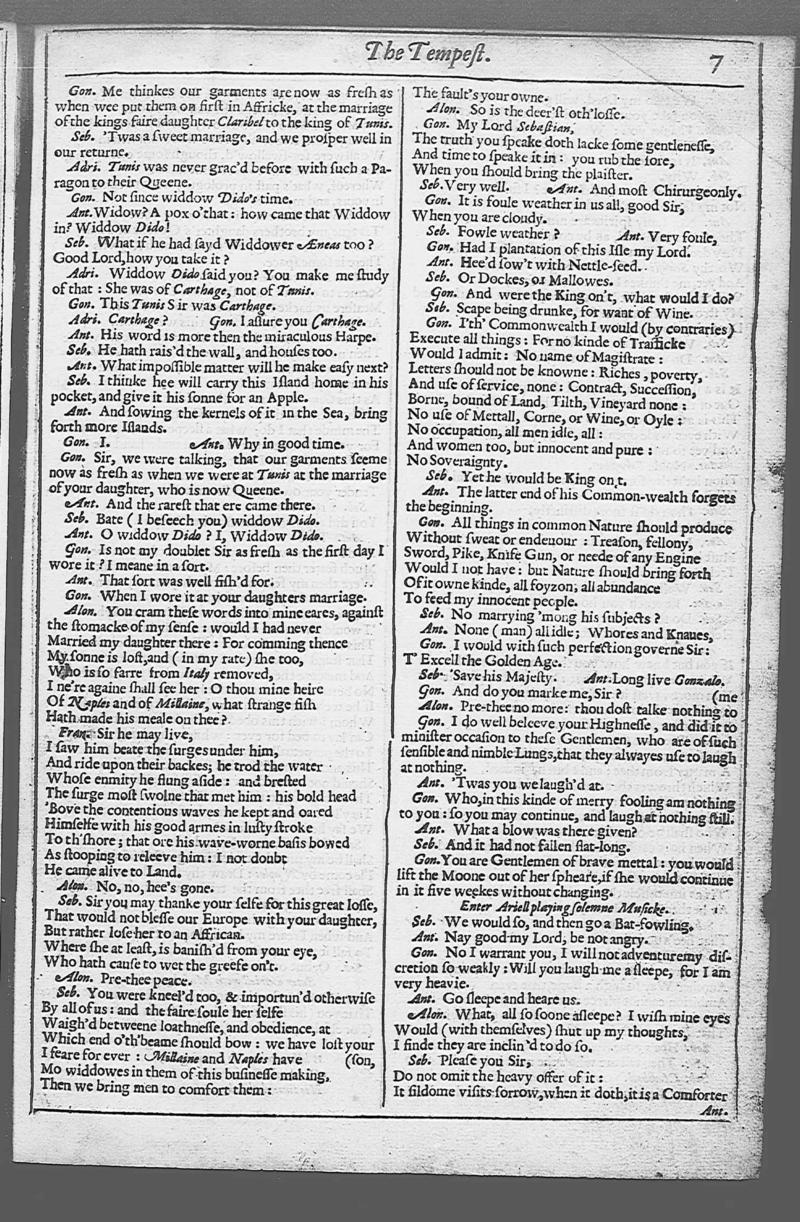 The Tempeſt.
7
Gon. Me thinkes our garments are now as freſh as
when wee put them on firſt in Affricke, at the marriage
of the kings faire daughter Claribel to the king of Tunis.
Seb. 'Twas a ſweet marriage, and we proſper well in
our returne.
Adri. Tunis was never grac'd before with ſuch a Pa-
ragon to their Queene.
Gon. Not ſince widdow Dido's time.
Ant. Widow? A pox o'that: how came that Widdow
in? Widdow Dido!
Seb. What if he had ſayd Widdower Æneas too?
Good Lord, how you take it?
Adri. Widdow Dido ſaid you? You make me ſtudy
of that: She was of Carthage, not of Tunis.
Gon. This Tunis Sir was Carthage.
Adri. Carthage? Gon. I aſſure you Carthage.
Ant. His word is more then the miraculous Harpe.
Seb. He hath rais'd the wall, and houſes too.
Ant. What impoſſible matter will he make eaſy next?
Seb. I thinke hee will carry this Iſland home in his
pocket, and give it his ſonne for an Apple.
Ant. And ſowing the kernels of it in the Sea, bring
forth more Iſlands.
Gon. I. Ant. Why in good time.
Gon. Sir, we were talking, that our garments ſeeme
now as freſh as when we were at Tunis at the marriage
of your daughter, who is now Queene.
Ant. And the rareſt that ere came there.
Seb. Bate (I beſeech you) widdow Dido.
Ant. O widdow Dido? I, Widdow Dido.
Gon. Is not my doublet Sir as freſh as the firſt day I
wore it? I meane in a ſort.
Ant. That ſort was well fiſh'd for.
Gon. When I wore it at your daughters marriage.
Alon. You cram theſe words into mine eares, againſt
the ſtomacke of my ſenſe: would I had never
Married my daughter there: For comming thence
My ſonne is loſt, and (in my rate) ſhe too,
Who is ſo farre from Italy removed,
I ne're againe ſhall ſee her: O thou mine heire
Of Naples and of Millaine, what ſtrange fiſh
Hath made his meale on thee?
Fran. Sir he may live,
I ſaw him beate the ſurges under him,
And ride upon their backes; he trod the water
Whoſe enmity he flung aſide: and breſted
The ſurge moſt ſwolne that met him: his bold head
'Bove the contentious waves he kept and oared
Himſelfe with his good armes in luſty ſtroke
To th'ſhore; that ore his wave-worne baſis bowed
As ſtooping to releeve him: I not doubt
He came alive to Land.
Alon. No, no, hee's gone.
Seb. Sir you may thanke your ſelfe for this great loſſe,
That would not bleſſe our Europe with your daughter,
But rather loſe her to an Affrican.
Where ſhe at leaſt, is baniſh'd from your eye,
Who hath cauſe to wet the greefe on't.
Alon. Pre-thee peace.
Seb. You were kneel'd too, & importun'd otherwiſe
By all of us: and the faire ſoule her ſelfe
Waigh'd betweene loathneſſe, and obedience, at
Which end o'th'beame ſhould bow: we have loſt your
I feare for ever: Millaine and Naples have (ſon,
Mo widdowes in them of this buſineſſe making,
Then we bring men to comfort them:
The fault's your owne.
Alon. So is the deer'ſt oth'loſſe.
Gon. My Lord Sebaſtian,
The truth you ſpeake doth lacke ſome gentleneſſe,
And time to ſpeake it in: you rub the ſore,
When you ſhould bring the plaiſter.
Seb. Very well. Ant. And moſt Chirurgeonly.
Gon. It is foule weather in us all, good Sir,
When you are cloudy.
Seb. Fowle weather? Ant. Very foule,
Gon. Had I plantation of this Iſle my Lord.
Ant. Hee'd ſow't with Nettle-ſeed.
Seb. Or Dockes, or Mallowes.
Gon. And were the King on't, what would I do?
Seb. Scape being drunke, for want of Wine.
Gon. I'th' Commonwealth I would (by contraries)
Execute all things: For no kinde of Trafficke
Would I admit: No name of Magiſtrate:
Letters ſhould not be knowne: Riches, poverty,
And uſe of ſervice, none: Contract, Succeſſion,
Borne, bound of Land, Tilth, Vineyard none:
No uſe of Mettall, Corne, or Wine, or Oyle:
No occupation, all men idle, all:
And women too, but innocent and pure:
No Soveraignty.
Seb. Yet he would be King on,t.
Ant. The latter end of his Common-wealth forgets
the beginning.
Gon. All things in common Nature ſhould produce
Without ſweat or endeuour: Treaſon, fellony,
Sword, Pike, Knife Gun, or neede of any Engine
Would I not have: but Nature ſhould bring forth
Of it owne kinde, all foyzon; all abundance
To feed my innocent people.
Seb. No marrying 'mong his ſubjects?
Ant. None (man) all idle; Whores and Knaues,
Gon. I would with ſuch perfection governe Sir:
T' Excell the Golden Age.
Seb. 'Save his Majeſty. Ant. Long live Gonzalo.
Gon. And do you marke me, Sir? (me
Alon. Pre-thee no more: thou doſt talke nothing to
Gon. I do well beleeve your Highneſſe, and did it to
miniſter occaſion to theſe Gentlemen, who are of ſuch
ſenſible and nimble Lungs, that they alwayes uſe to laugh
at nothing.
Ant. 'Twas you we laugh'd at.
Gon. Who, in this kinde of merry fooling am nothing
to you: ſo you may continue, and laugh at nothing ſtill.
Ant. What a blow was there given?
Seb. And it had not fallen flat-long.
Gon. You are Gentlemen of brave mettal: you would
lift the Moone out of her ſpheare, if ſhe would continue
in it five weekes without changing.
Enter Ariell playing ſolemne Muſicke.
Seb. We would ſo, and then go a Bat-fowling.
Ant. Nay good my Lord, be not angry.
Gon. No I warrant you, I will not adventure my diſ-
cretion ſo weakly: Will you laugh me aſleepe, for I am
very heavie.
Ant. Go ſleepe and heare us.
Alon. What, all ſo ſoone aſleepe? I wiſh mine eyes
Would (with themſelves) ſhut up my thoughts,
I finde they are inclin'd to do ſo.
Seb. Pleaſe you Sir,
Do not omit the heavy offer of it:
It ſildome viſits ſorrow, when it doth, it is a Comforter
Ant.